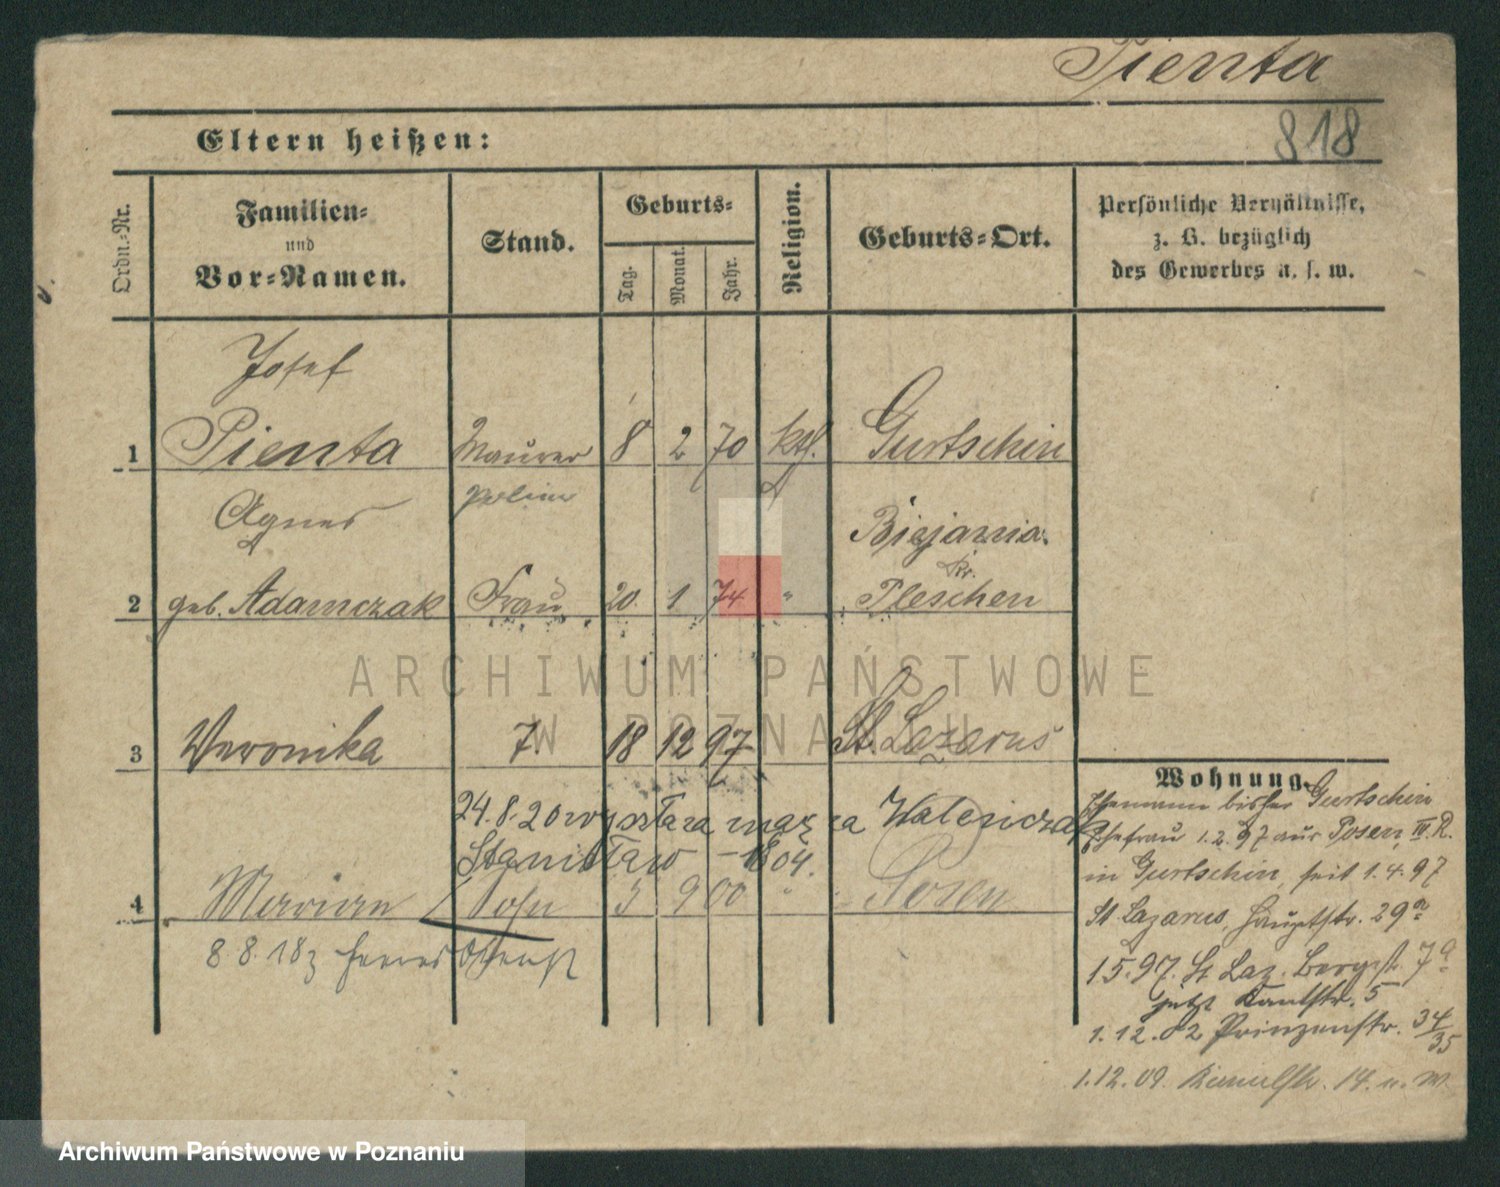 Pienta
818
Eltern heißen:
Ordn.-Nr.
Familien-
und
Vor-Namen.
Stand.
Geburts-
Tag.
Monat.
Jahr.
Religion.
Geburts-Ort.
Persönliche Verhältnisse,
z. B. bezüglich
des Gewerbes u. s. w.
Josef
1 Pienta Maurer 8 2 70 kth. Gurtschin
Agnes Biejania
Kr.
2 geb. Adamczak Frau 20. 1 74 " Pleschen
ARCHIWUM PAŃSTWOWE
W POZNANIU
3 Veronika T. 18 12 97 St. Lazarus
Wohnung.
24.8.20 wystara męża Walesiczak
Stanisław 04.
4 Marian Sohn 5 9 00 " Posen
8. 8. 18
Ehemann bisher Gurtschin
Ehefrau 1.2.97 aus Posen, IV. R.
in Gurtschin, seit 1.4.97
St Lazarus, Hauptstr. 29a
1 5.97. St Laz. Bergstr. 7a
jetzt Kantstr. 5
1.12.02 Prinzenstr. 34/35
1.12.09. 14. u. W.
Archiwum Państwowe w Poznaniu